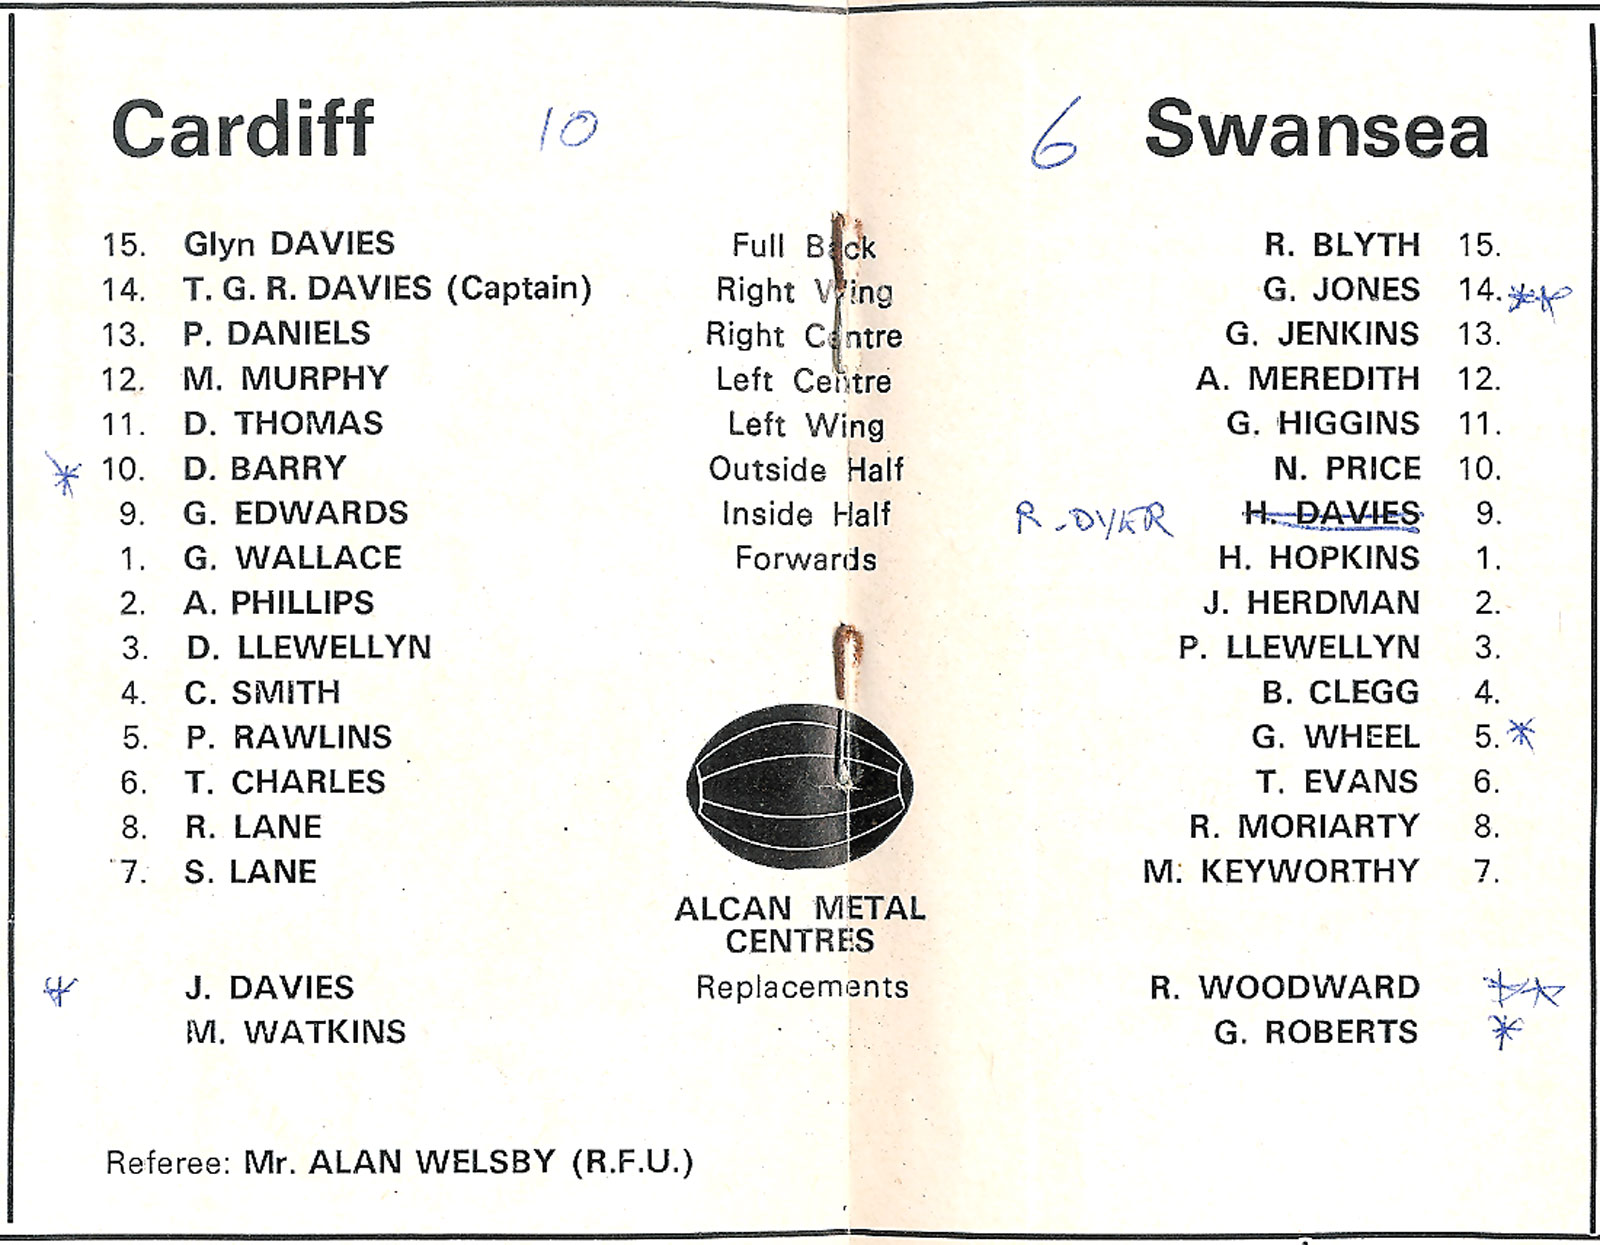 Cardiff 10 6 Swansea
15. Glyn DAVIES Full Back R. BLYTH 15.
14. T. G. R. DAVIES (Captain) Right Wing G. JONES 14. **
13. P. DANIELS Right Centre G. JENKINS 13.
12. M. MURPHY Left Centre A. MEREDITH 12.
11. D. THOMAS Left Wing G. HIGGINS 11.
* 10. D. BARRY Outside Half N. PRICE 10.
9. G. EDWARDS Inside Half R. DYER H. DAVIES 9.
1. G. WALLACE Forwards H. HOPKINS 1.
2. A. PHILLIPS J. HERDMAN 2.
3. D. LLEWELLYN P. LLEWELLYN 3.
4. C. SMITH B. CLEGG 4.
5. P. RAWLINS G. WHEEL 5. *
6. T. CHARLES T. EVANS 6.
8. R. LANE R. MORIARTY 8.
7. S. LANE M. KEYWORTHY 7.
ALCAN METAL
CENTRES
* J. DAVIES Replacements R. WOODWARD **
M. WATKINS G. ROBERTS *
Referee: Mr. ALAN WELSBY (R.F.U.)